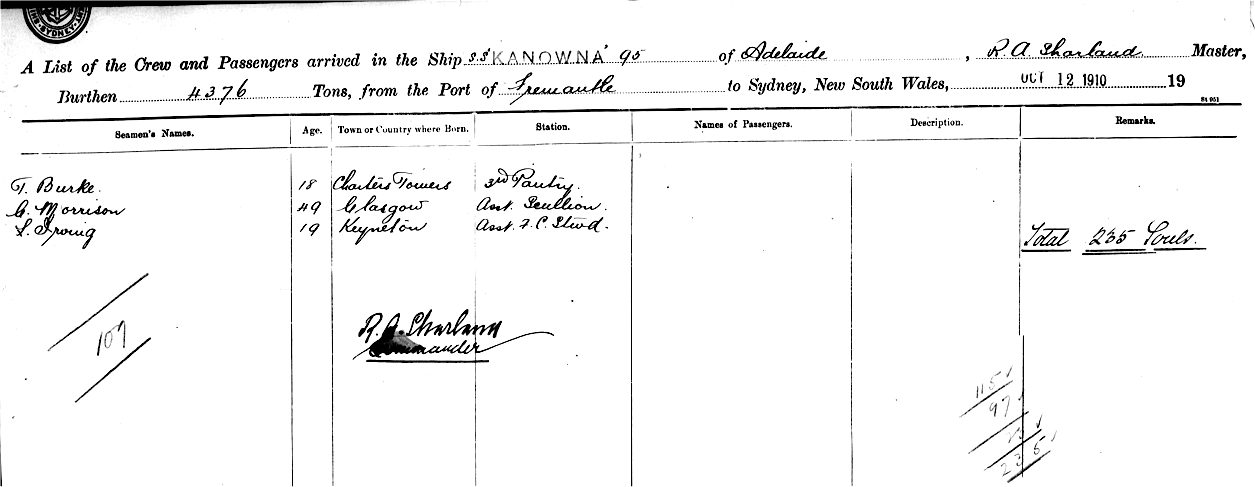 SYDNEY
A List of the Crew and Passengers arrived in the Ship S.S. 'KANOWNA' 95 of Adelaide, R. A. Sharland Master,
Burthen 4376 Tons, from the Port of Fremantle to Sydney, New South Wales, OCT 12 1910 19
St 951
Seamen's Names. Age. Town or Country where Born. Station. Names of Passengers. Description. Remarks.
T. Burke. 18 Charters Towers 3rd Pantry.
C. Morrison 49 Glasgow Asst. Scullion.
L. Irving 19 Keyneton Asst. F. C. Stwd.
Total 235 Souls.
107
R. A. Sharland
Commander
115
97
235